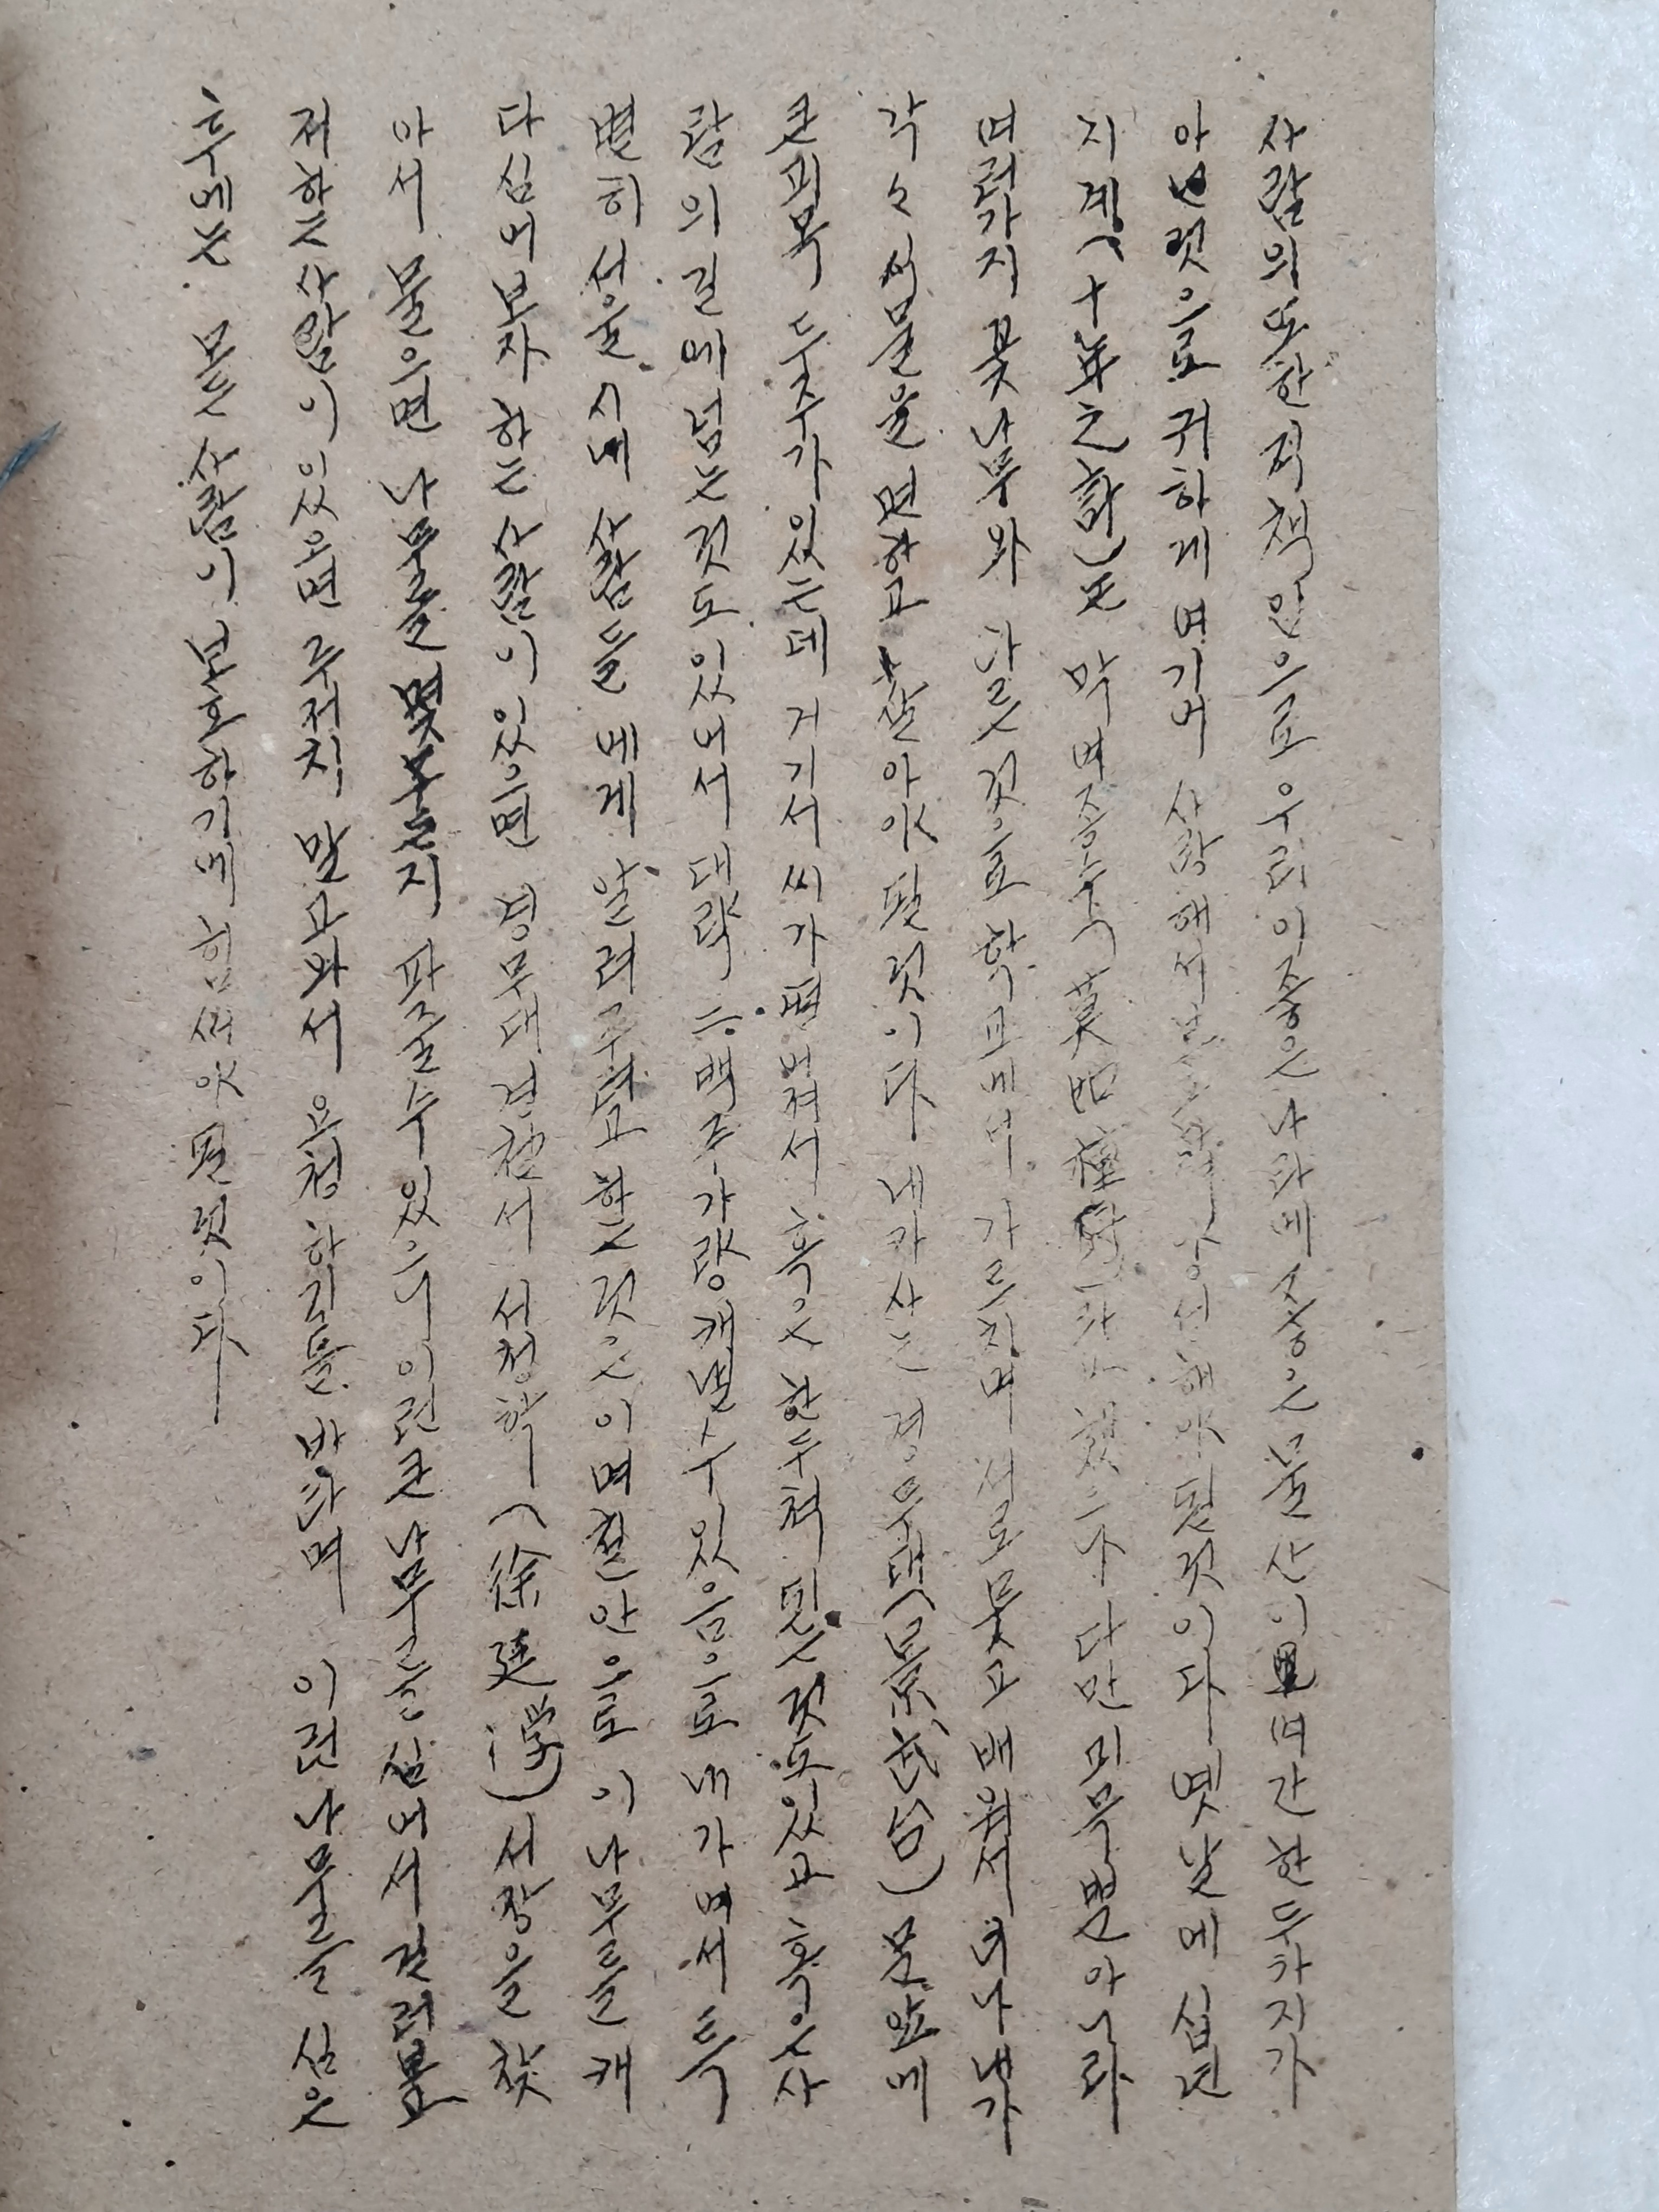 사람의 또한 적책인으로 우리 이 즁은 나라에 즁은 물산이 여간 한두가지가
아닌 것으로 귀하게 여기어 사랑해서 해야 될 것이다 옛날에 십년
지계(十年之計)도 막여죵수(莫如種樹)라 하 다만 미목뿐 아니라
여러가지 꽃나무와 다른 것으로 학교에서 가르치며 서로 뭇고 배워서 너나 내가
각々 식물을 면하고 살아야 될 것이다 내가 사는 경무대(景武台) 문앞에
큰 괴목 두주가 있는데 거기서 씨가 펴져서 혹은 한두척 된 것도 있고 혹은 사
람의 길에 넘는 것도 있어서 대략 三백주가량 캐낼 수 있음으로 내가 여서 특
별히 서울 시내 사람들에게 알려주고 하는 것은 이며칠 안으로 이 나무를 캐
다 심어보자 하는 사람이 있으면 경무대 경찰서 서정학(徐廷学) 서장을 찾
아서 물으면 나무를 몇 주든지 파 줄 수 있으니 이런 큰 나무를 심어서 길러보고
저 하는 사람이 있으면 주저치 말고 와서 요청하기를 바라며 이런 나무를 심은
후에는 모든 사람이 보호하기에 힘써야 될 것이다